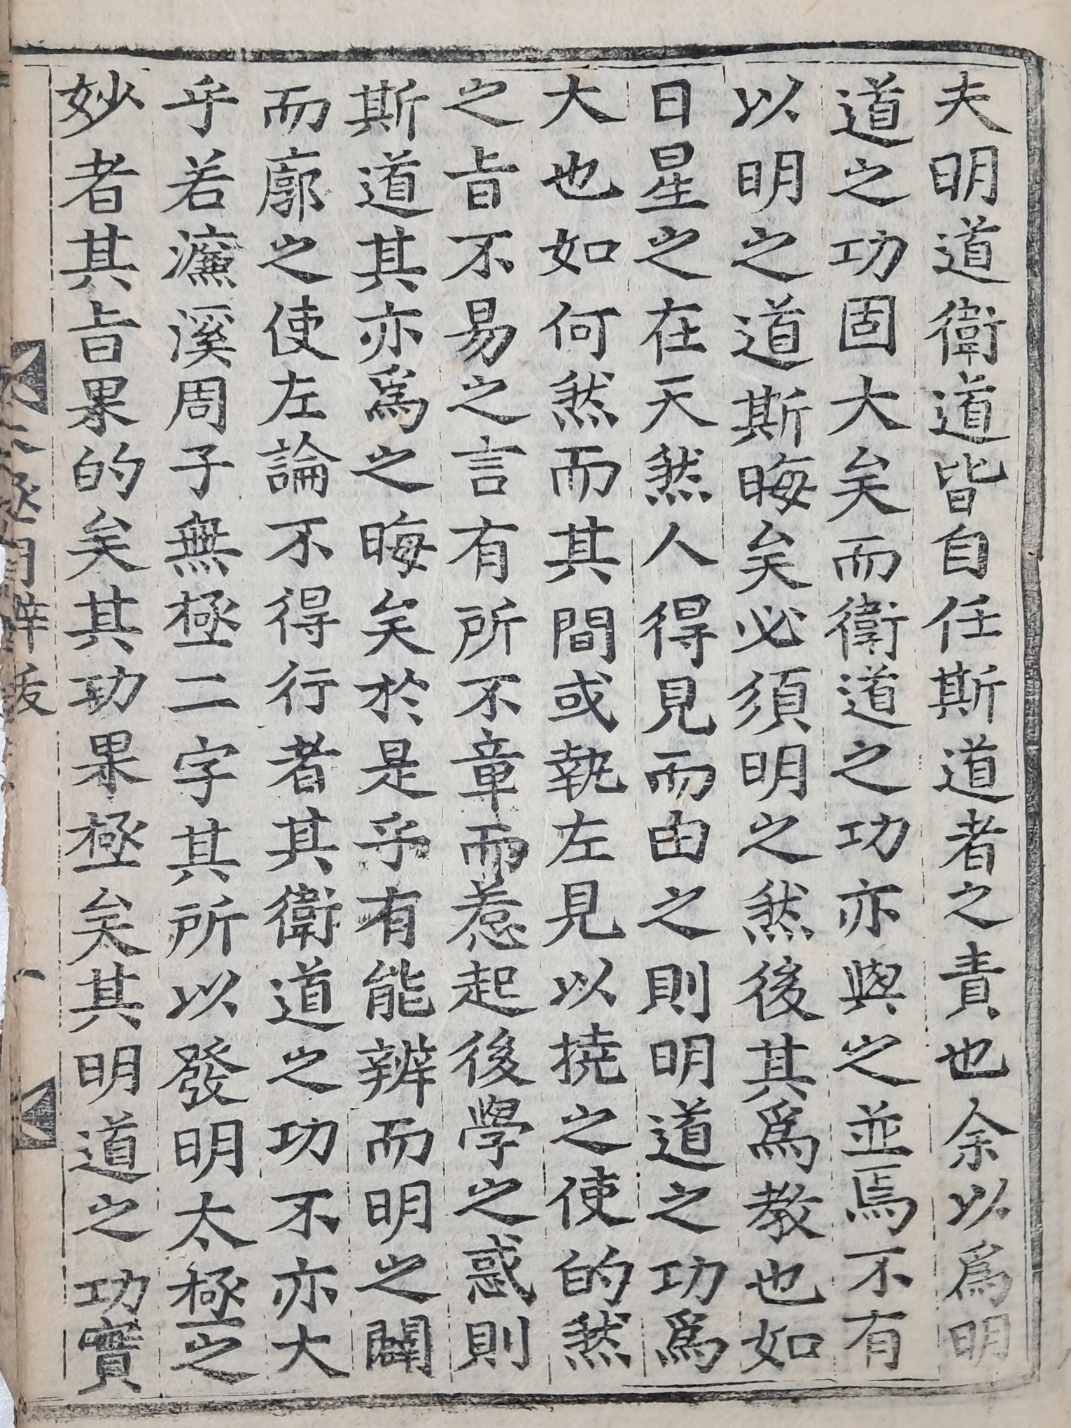 夫明道衛道皆自任斯道者之責也余以爲明
道之功固大矣而衛道之功亦與之並焉不有
以明之道斯晦矣必須明之然後其爲教也如
日星之在天然人得見而由之則明道之功爲
大也如何然而其間或執左見以撓之使的然
之旨不易之言有所不章而惹起後學之惑則
斯道其亦爲之晦矣於是乎有能辨而明之闢
而廓之使左論不得行者其衛道之功不亦大
乎若濂溪周子無極二字其所以發明太極之
妙者其旨果的矣其功果極矣其明道之功實